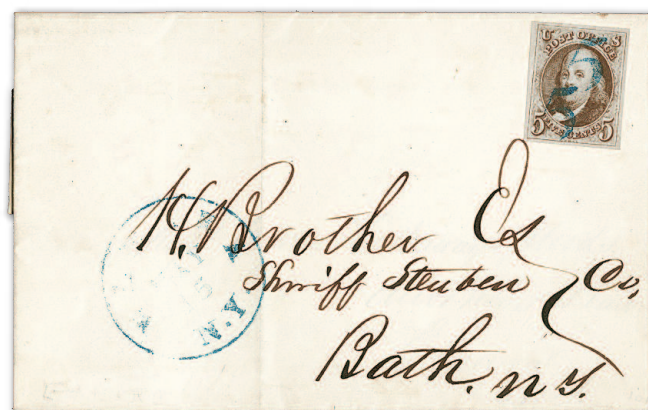 U S
POST OFFICE
5 FIVE CENTS 5
5
H. Brother Esq
Sheriff Steuben Co,
Bath. N Y.
N.Y.